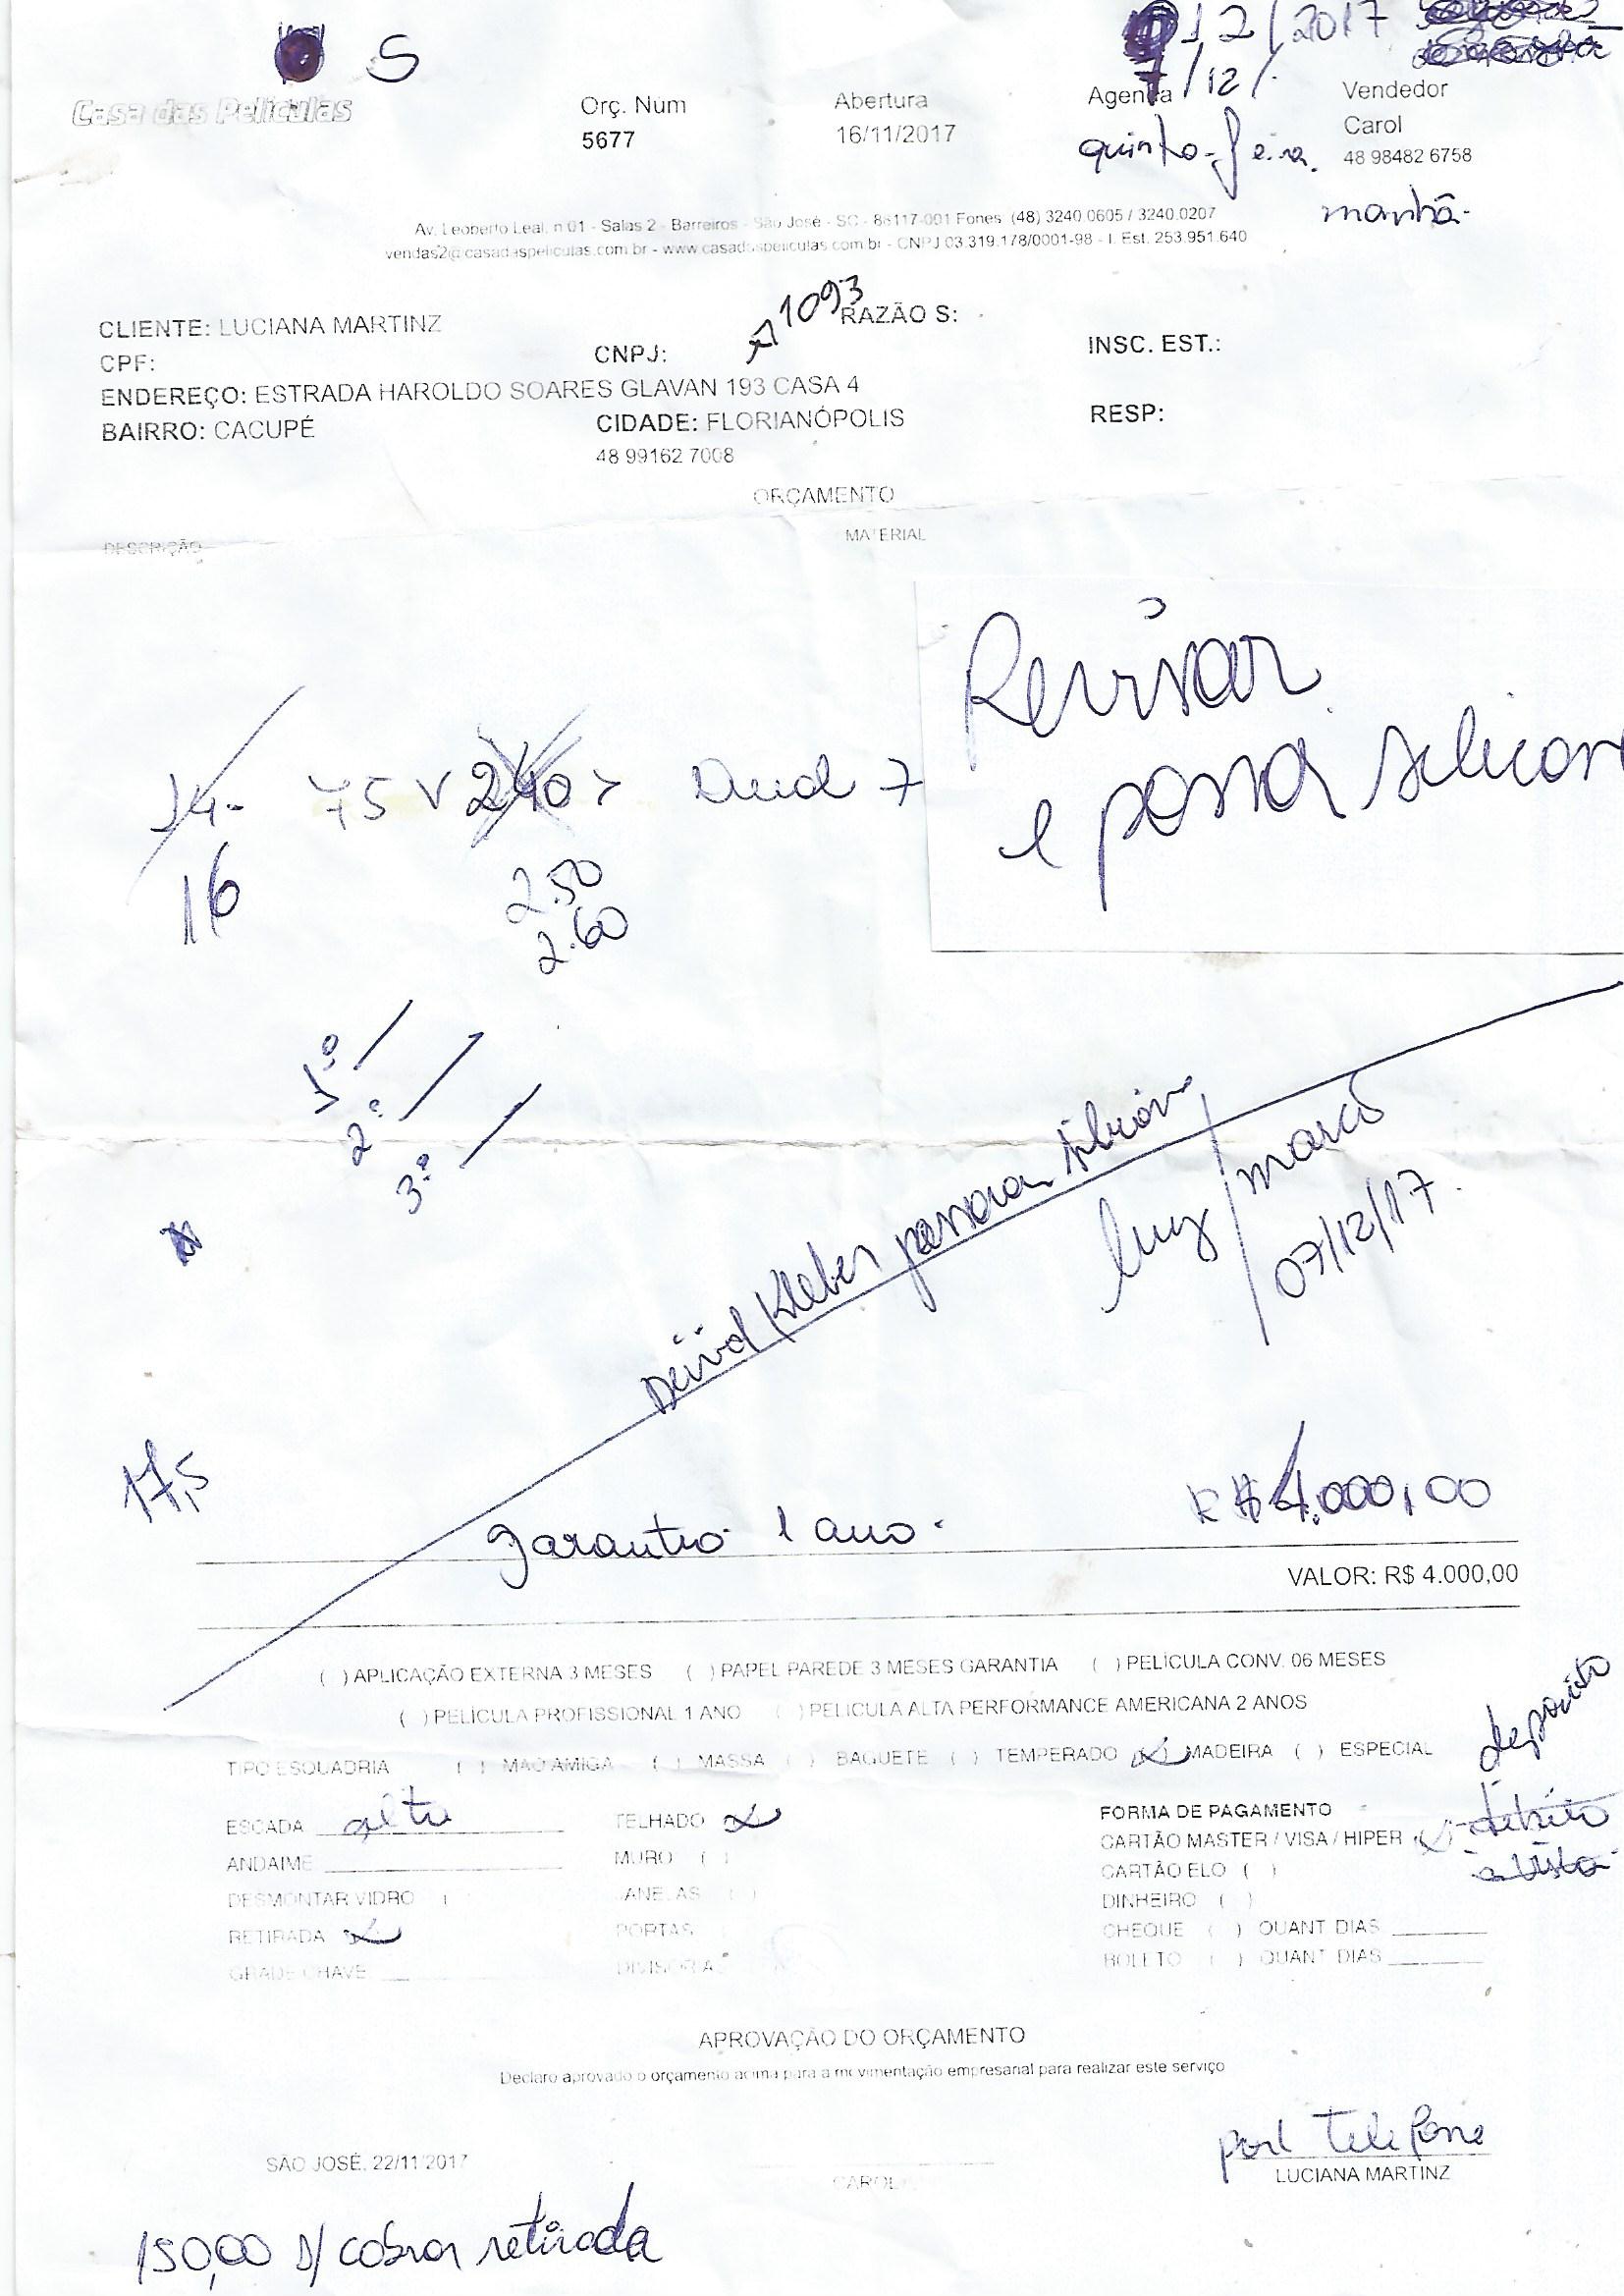 12/2017
S
7/12/
Casa das Películas
Orç. Núm
5677
Abertura
16/11/2017
Agenda
quinta-feira.
Vendedor
Carol
48 98482 6758
manhã-
Av. Leoberto Leal, n 01 - Salas 2 - Barreiros - São José - SC - 88117-001 Fones (48) 3240.0605 / 3240.0207
vendas2@casadaspeliculas.com.br - www.casadaspeliculas.com.br - CNPJ 03.319.178/0001-98 - I. Est. 253.951.640
1093
CLIENTE: LUCIANA MARTINZ
RAZÃO S:
CPF:
CNPJ:
INSC. EST.:
ENDEREÇO: ESTRADA HAROLDO SOARES GLAVAN 193 CASA 4
BAIRRO: CACUPÉ
CIDADE: FLORIANÓPOLIS
RESP:
48 99162 7008
ORÇAMENTO
DESCRIÇÃO
MATERIAL
Revisar
e passar silicon
14- 75 V 240 > Dual 7
16
2.50
2.60
1º
2º
3º
Deivid Kleber passaram silicone
Luiz / marco
07/12/17.
17,5
R$ 4.000,00
garantia 1 ano.
VALOR: R$ 4.000,00
( ) APLICAÇÃO EXTERNA 3 MESES ( ) PAPEL PAREDE 3 MESES GARANTIA ( ) PELÍCULA CONV. 06 MESES
( ) PELÍCULA PROFISSIONAL 1 ANO ( ) PELICULA ALTA PERFORMANCE AMERICANA 2 ANOS
deposito
TIPO ESQUADRIA ( ) MAO AMIGA ( ) MASSA ( ) BAGUETE ( ) TEMPERADO (X) MADEIRA ( ) ESPECIAL
ESCADA alta
TELHADO X
FORMA DE PAGAMENTO
CARTÃO MASTER / VISA / HIPER (X) débito
à vista
ANDAIME
MURO ( )
CARTÃO ELO ( )
DESMONTAR VIDRO (
JANELAS ( )
DINHEIRO ( )
RETIRADA X
PORTAS
CHEQUE ( ) QUANT DIAS
GRADE CHAVE
DIVISORIA
BOLETO ( ) QUANT DIAS
APROVAÇÃO DO ORÇAMENTO
Declaro aprovado o orçamento acima para a movimentação empresarial para realizar este serviço
por telefone
SÃO JOSÉ, 22/11/2017
CAROL
LUCIANA MARTINZ
150,00 p/ cobrar retirada